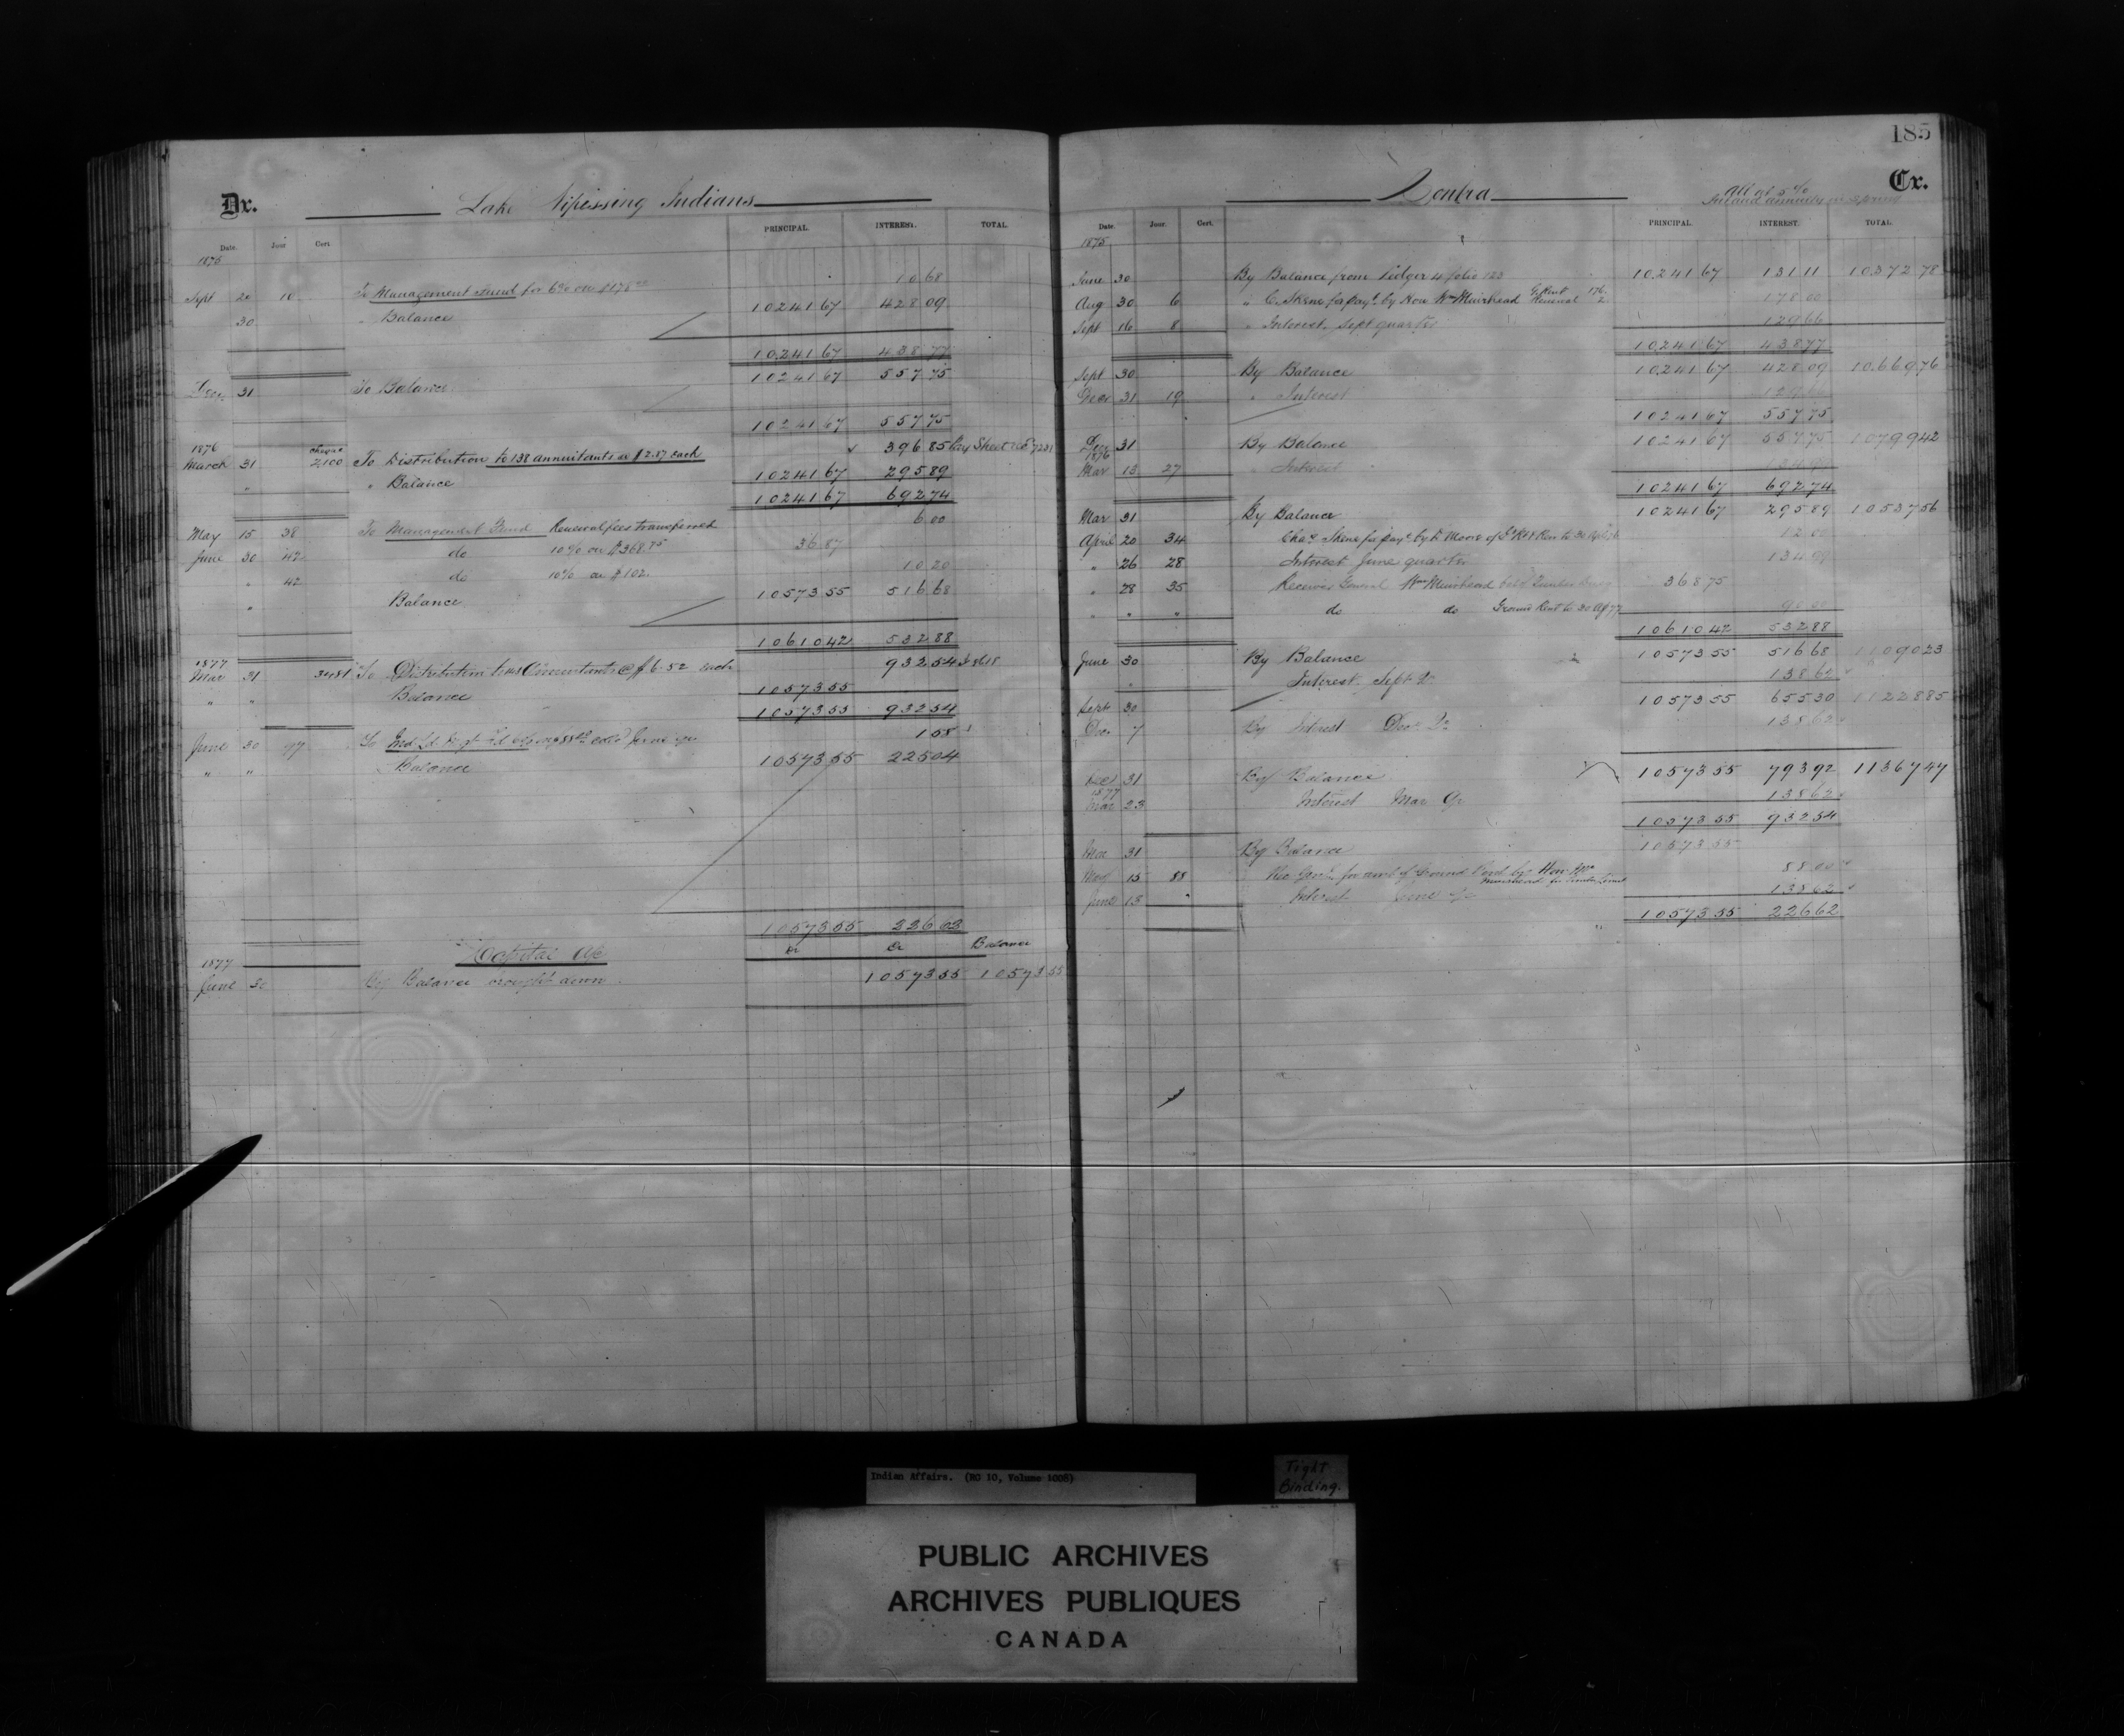 185
Dr. Lake Nipissing Indians
Date. Jour Cert. PRINCIPAL. INTEREST. TOTAL.
1875
Sept 20 10 To Management Fund for 6% on $178.00 10.68
30 " Balance 10241 67 428 09
10241 67 438 77
Dec. 31 To Balance 10241 67 557 75
10241 67 557 75
1876 cheque
March 31 2100 To Distribution to 138 annuitants at $2.87 each 396 85 Pay Sheet No
" " Balance 10241 67 295 89
10241 67 692 74
May 15 38 To Management Fund Renewal fees transferred 6 00
June 30 42 do 10% on $368.75 36.87
" 42 do 10% on $102. 10 20
" Balance 10573 55 516 68
10610 42 532 88
1877
Mar 31 3481 To Distribution Annuitants @ $6.52 each 932 54
" " Balance 10573 55
10573 55 932 54
June 30 77 To
" " Balance 10573 55 225 04
10573 55
Capital a/c
Balance
1877
June 30 By Balance brought down 10573 55 10573 55
Contra Cr.
All at 5%
Date. Jour. Cert. PRINCIPAL. INTEREST. TOTAL.
1875
June 30 By Balance from Ledger 4 folio 123 10241 67 131 11 10372 78
Aug 30 6 " C. Skene for payt. by Hon Wm Muirhead G. Rent 176. Renewal 2. 178 00
Sept 16 8 " Interest, Sept quarter 129 66
10241 67 438 77
Sept 30 By Balance 10241 67 428 09 10669 76
Decr 31 19 " Interest 129 66
10241 67 557 75
Dec 31 By Balance 10241 67 557 75 10799 42
1876
Mar 13 27 " Interest " 134 99
10241 67 692 74
Mar 31 By Balance 10241 67 295 89 10537 56
April 20 34 Chas Skene for payt. by 12 00
" 26 28 Interest June quarter 134 99
" 28 35 Receiver General Wm Muirhead 368 75
" " " do do Ground Rent to 30 Ap 77 90 00
10610 42 532 88
June 30 By Balance 10573 55 516 68 11090 23
" Interest Sept Qr 138 62
Sept 30 10573 55 655 30 11228 85
Dec 7 By Interest Decr Qr 138 62
Dec 31 By Balance 10573 55 793 92 11367 47
1877
Mar 23 Interest Mar Qr 138 62
10573 55 932 54
Mar 31 By Balance 10573 55
May 15 88 Rec Genl for amt of Ground Rent by Hon Wm Muirhead 88 00
June 13 " Interest June Qr 138 62
10573 55 226 62
Indian Affairs. (RG 10, Volume 1008)
Tight Binding.
PUBLIC ARCHIVES
ARCHIVES PUBLIQUES
CANADA